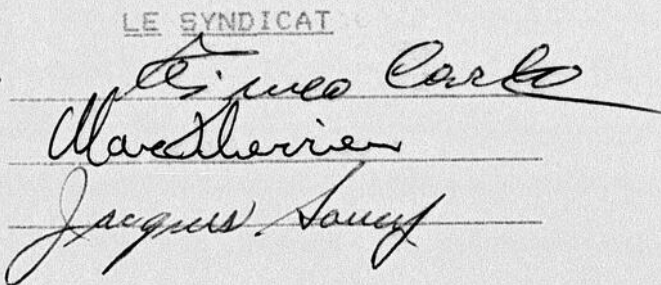 LE SYNDICAT
Carlo
Marc Therrien
Jacques Soucy